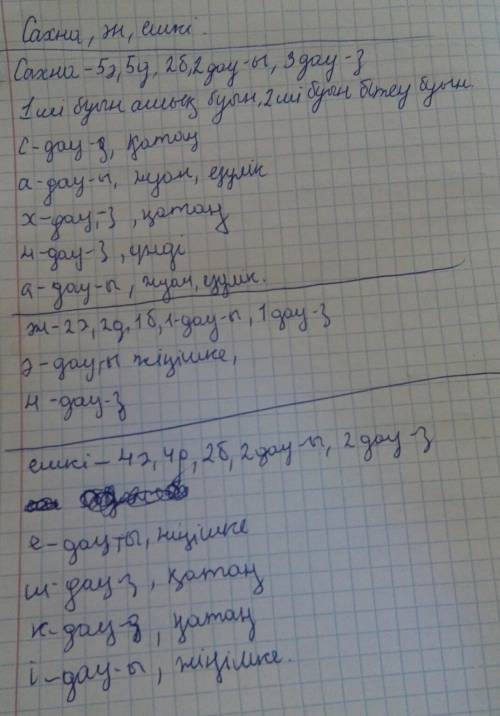 Сахна, ән, ешкі.
Сахна - 5ә, 5д, 2б, 2 дау-ы, 3 дау-з
1ші буын ашық буын, 2ші буын бітеу буын.
с-дау-з, қатаң
а-дау-ы, жуан, езулік
х-дау-з, қатаң
н-дау-з, үнді
а-дау-ы, жуан, езулік.
ән-2ә, 2д, 1б, 1-дау-ы, 1 дау-з
ә-дау-ы жіңішке,
н-дау-з
ешкі - 4ә, 4д, 2б, 2 дау-ы, 2 дау-з
е-дау-ты, жіңішке
ш-дау-з, қатаң
к-дау-з, қатаң
і-дау-ы, жіңішке.